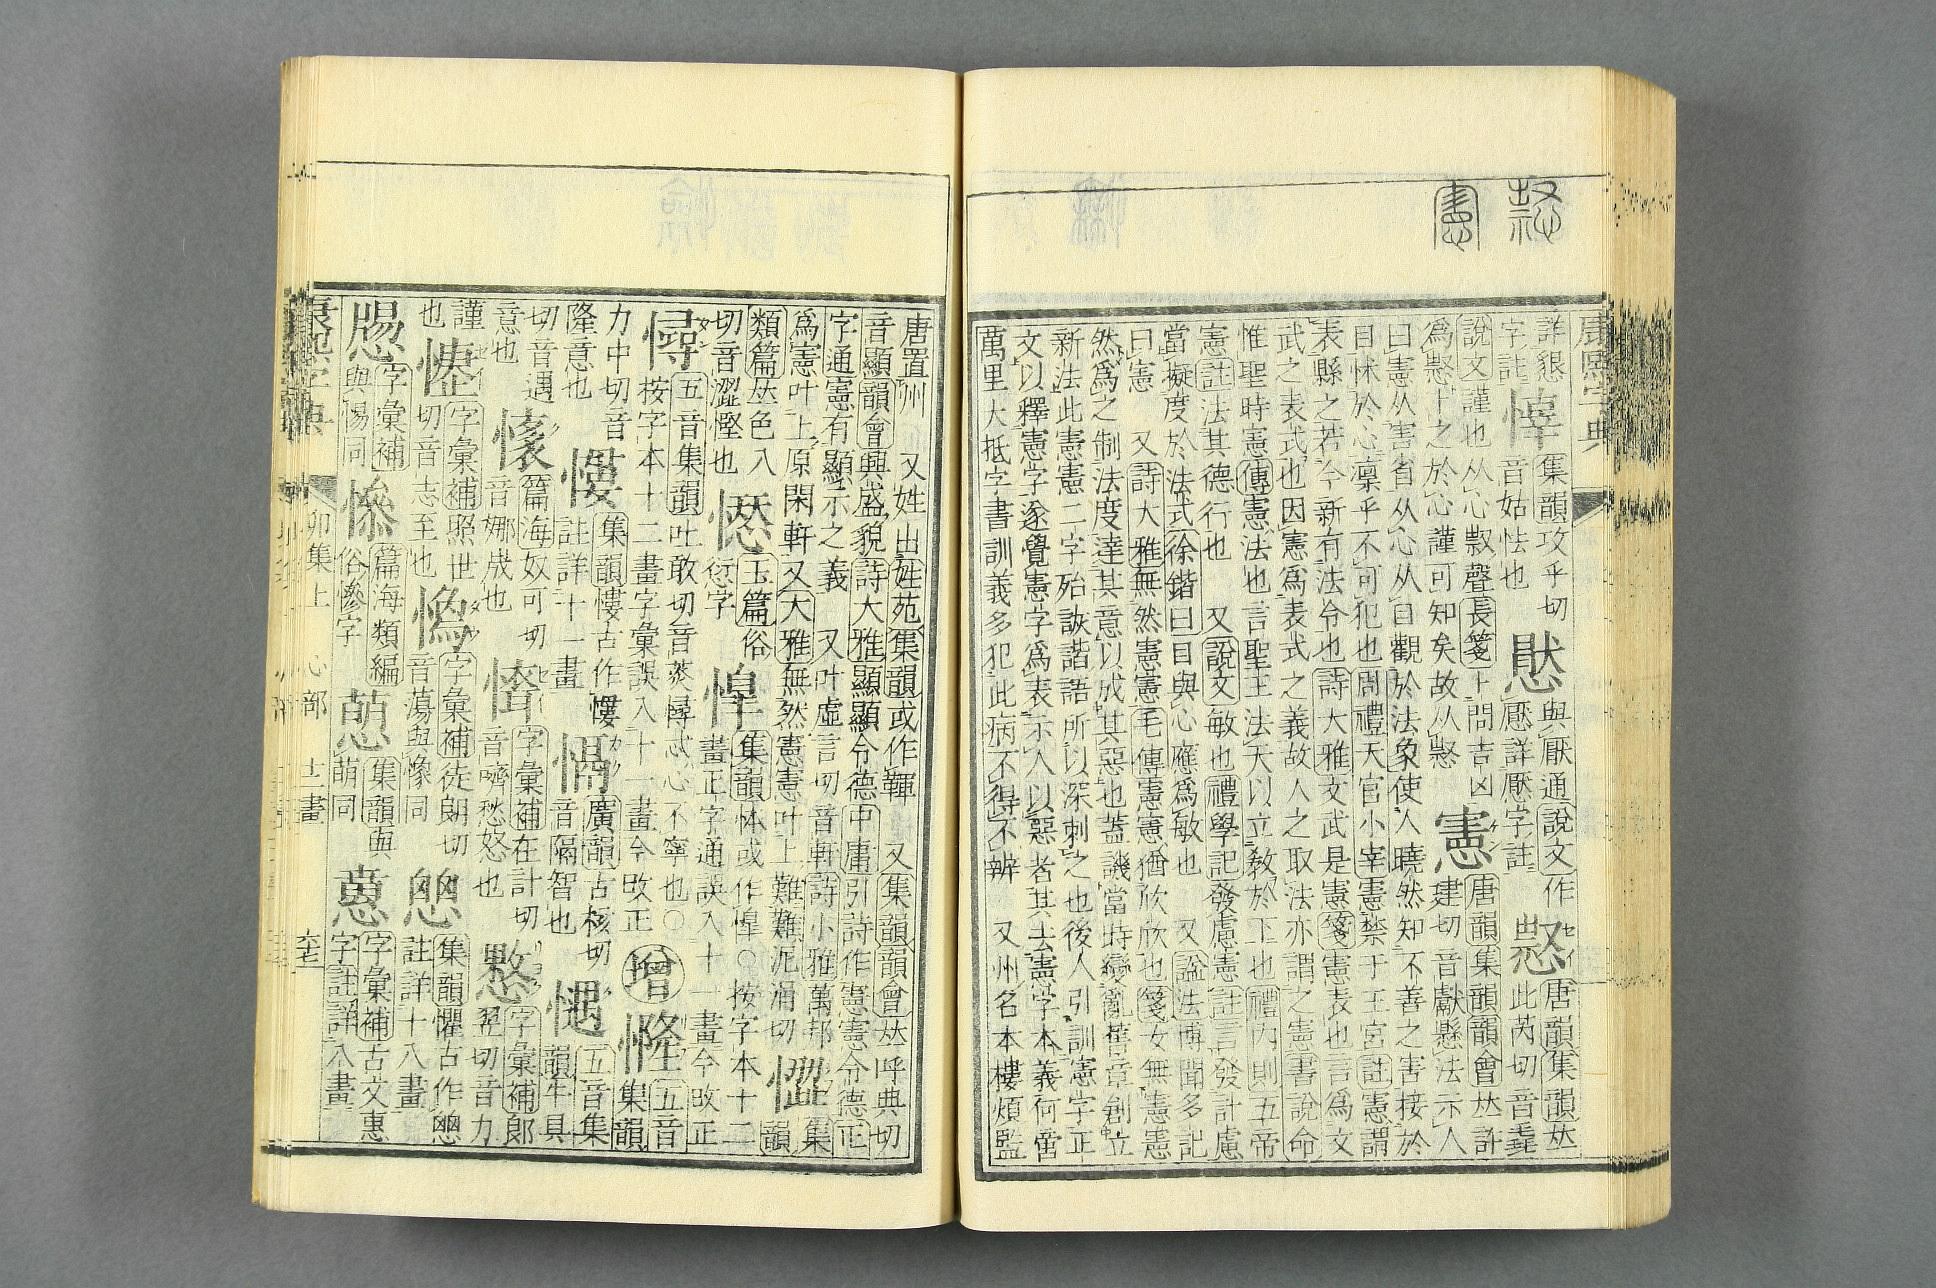 康熙字典
詳懇
字註
集韻攻乎切
音姑怯也
懕
與厭通說文作
懕詳厭字註
㦐
唐韻集韻𠀤
此芮切音毳
說文謹也从心㕡聲長箋卜問吉凶
為㦐卜之於心謹可知矣故从㦐
憲
唐韻集韻韻會𠀤許
建切音獻懸法示人
曰憲从害省从心从目觀於法象使人曉然知不善之害接於
目怵於心凜乎不可犯也周禮天官小宰憲禁于王宮註憲謂
表縣之若今新有法令也詩大雅文武是憲箋憲表也言爲文
武之表式也因憲爲表式之義故人之取法亦謂之憲書說命
惟聖時憲傳憲法也言聖王法天以立敎於下也禮內則五帝
憲註法其德行也 又說文敏也禮學記發慮憲註言發計慮
當擬度於法式徐鍇曰目與心應爲敏也 又諡法博聞多記
曰憲 又詩大雅無然憲憲毛傳憲憲猶欣欣也箋女無憲憲
然爲之制法度達其意以成其惡也蓋譏當時變亂舊章創立
新法此憲憲二字殆詼諧語所以深刺之也後人引訓憲字正
文以釋憲字遂覺憲字爲表示人以惡者其去憲字本義何啻
萬里大抵字書訓義多犯此病不得不辨 又州名本樓煩監
唐置州 又姓出姓苑集韻或作 又集韻韻會𠀤呼典切
音顯韻會興盛貌詩大雅顯顯令德中庸引詩作憲憲令德正
字通憲有顯示之義 又叶虛言切音軒詩小雅萬邦
爲憲叶上原閑軒又大雅無然憲憲叶上難難泥涓切
集韻
類篇𠀤色入
切音澀慳也
玉篇俗
愆字
集韻
或作惶○按字本十二
畫正字通誤入十一畫今改正
憳
五音集韻吐敢切音菼憳忒心不寧也○
按字本十二畫字彙誤入十一畫今改正
增
五音
集韻
力中切音
隆意也
慺
集韻慺古作
註詳十一畫
廣韻古核切
音隔智也
五音集
韻牛具
切音遇
意也
篇海奴可切
音娜
也
字彙補在計切
音嚌愁怒也
字彙補郎
翌切音力
謹
也
字彙補照世
切音志至也
字彙補徒朗切
音蕩與愓同
集韻懼古作
註詳十八畫
字彙補
與惕同
篇海類編
俗慘字
集韻與
萌同
字彙補古文惠
字註詳八畫
康熙字典
卯集上
心部
十二畫